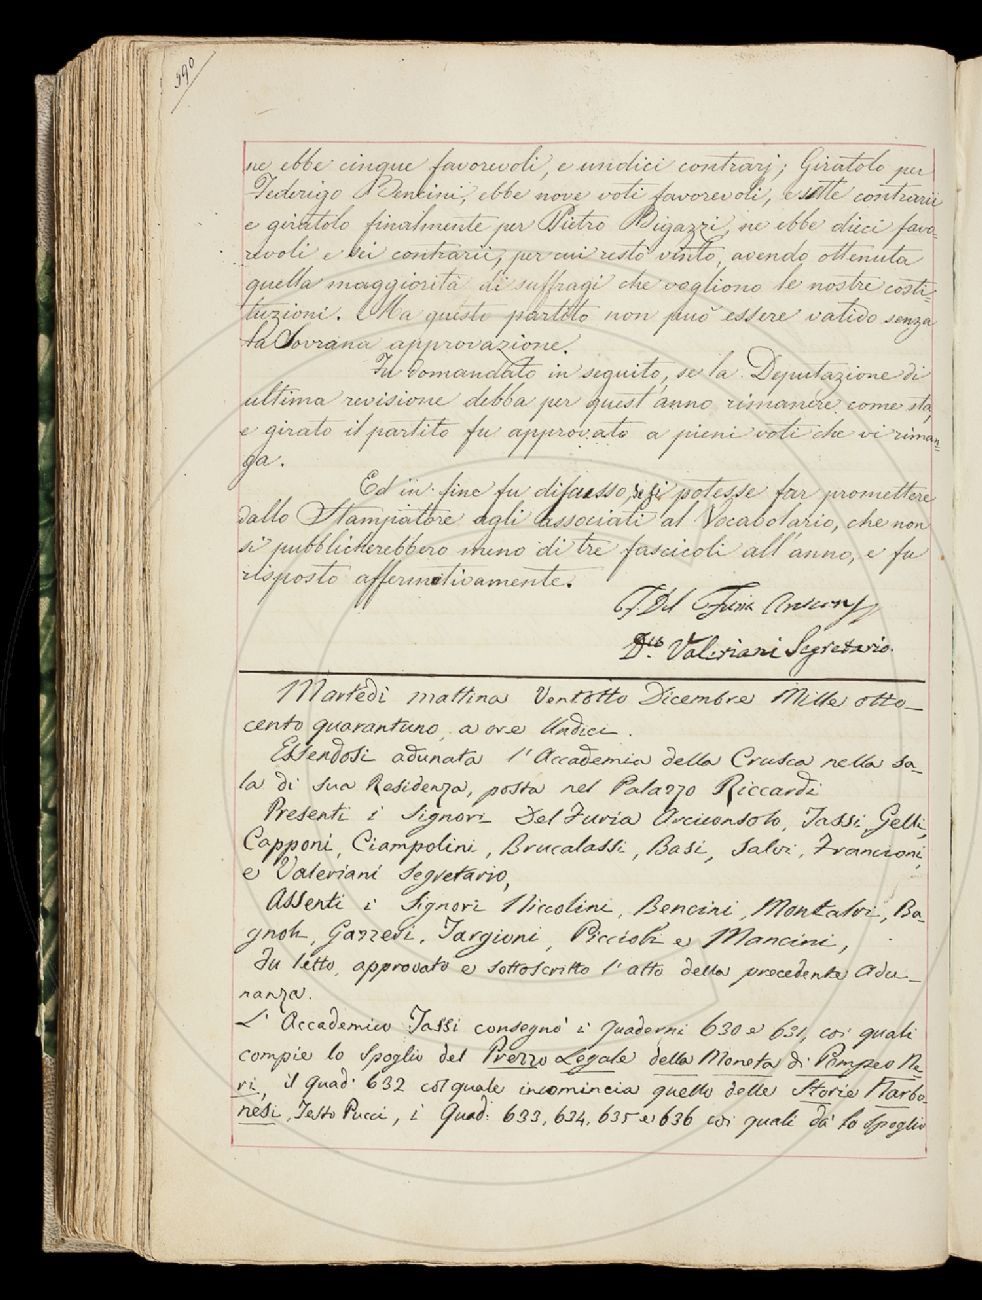 390
ne ebbe cinque favorevoli, e undici contrarj; Giratolo per
Federigo Bencini, ebbe nove voti favorevoli, e sette contrarii
e giratolo finalmente per Pietro Bigazzi, ne ebbe dieci favo-
revoli e sei contrarii, per cui restò vinto, avendo ottenuta
quella maggiorità di suffragi che vogliono le nostre costi-
tuzioni. Ma questo partito non può essere valido senza
la Sovrana approvazione.
Fu domandato in seguito, se la Deputazione di
ultima revisione debba per quest'anno rimanere come sta,
e girato il partito fu approvato a pieni voti che vi riman-
ga.
Ed in fine fu discusso, se si potesse far promettere
dallo Stampatore agli associati al Vocabolario, che non
si pubblicherebbero meno di tre fascicoli all'anno, e fu
risposto affermativamente.
F. Del Furia Arcicons.
Dre. Valeriani Segretario.
Martedì mattina Ventotto Dicembre Mille otto-
cento quarantuno, a ore Undici.
Essendosi adunata l'Accademia della Crusca nella sa-
la di sua Residenza, posta nel Palazzo Riccardi
Presenti i Signori Del Furia Arciconsolo, Tassi, Gelli,
Capponi, Ciampolini, Brucalassi, Basi, Salvi, Francioni,
e Valeriani Segretario,
Assenti i Signori Niccolini, Bencini, Montalvi, Ba-
gnoli, Gazzeri, Targioni, Piccioli e Mancini,
Fu letto, approvato e sottoscritto l'atto della precedente Adu-
nanza.
L'Accademico Tassi consegnò i quaderni 630 e 631, coi quali
compie lo Spoglio del Prezzo Legale della Moneta di Pompeo Ne-
ri, il Quad: 632 col quale incomincia quello delle Storie Narbo-
nesi, Testo Pucci, i Quad: 633, 634, 635 e 636 coi quali dà lo Spoglio